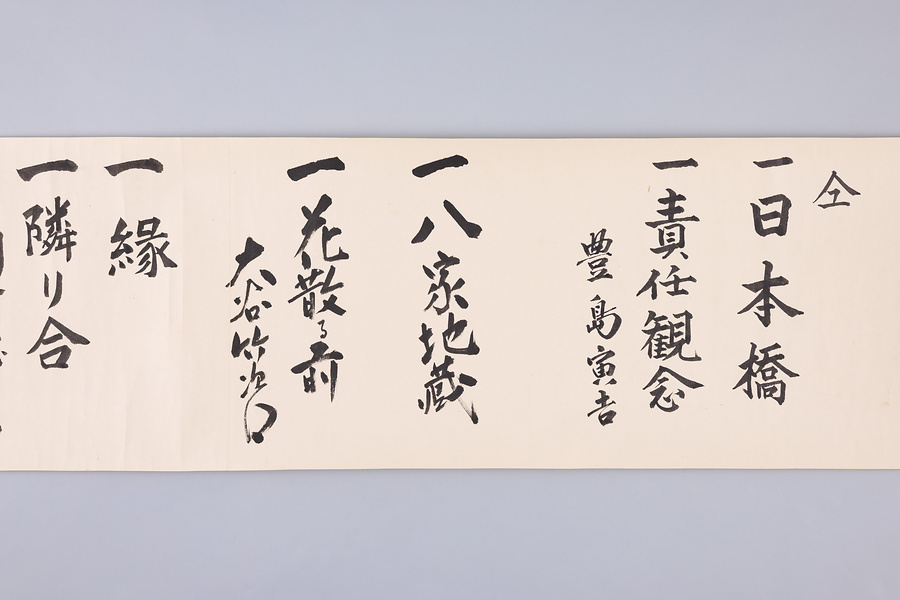 仝
一日本橋
一責任観念
豊島寅吉
一八家地蔵
一花散る前
大谷竹次郎
一縁
一隣り合